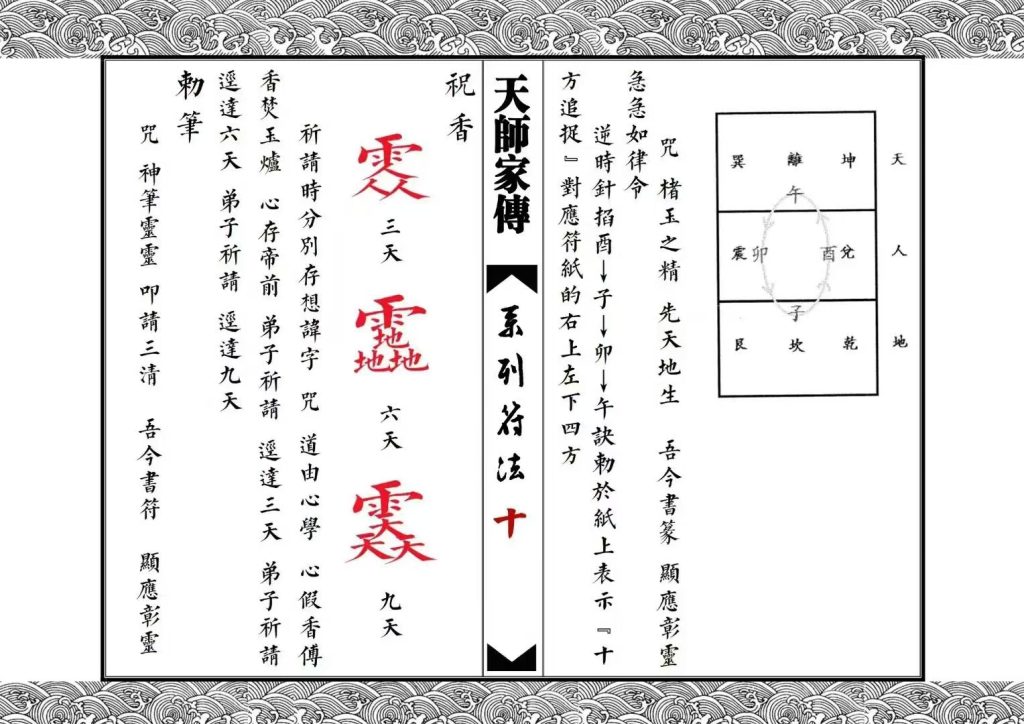 巽 離 坤 天
午
震 卯 酉 兌 人
子
艮 坎 乾 地
咒 楮玉之精 先天地生 吾今書篆 顯應彰靈
急急如律令
逆時針掐酉→子→卯→午訣勅於紙上表示『十
方追捉』對應符紙的右上左下四方
天師家傳
系列符法 十
祝香
三天
六天
九天
祈請時分別存想諱字 咒 道由心學 心假香傅
香焚玉爐 心存帝前 弟子祈請 逕達三天 弟子祈請
逕達六天 弟子祈請 逕達九天
勅筆
咒 神筆靈靈 叩請三清 吾今書符 顯應彰靈